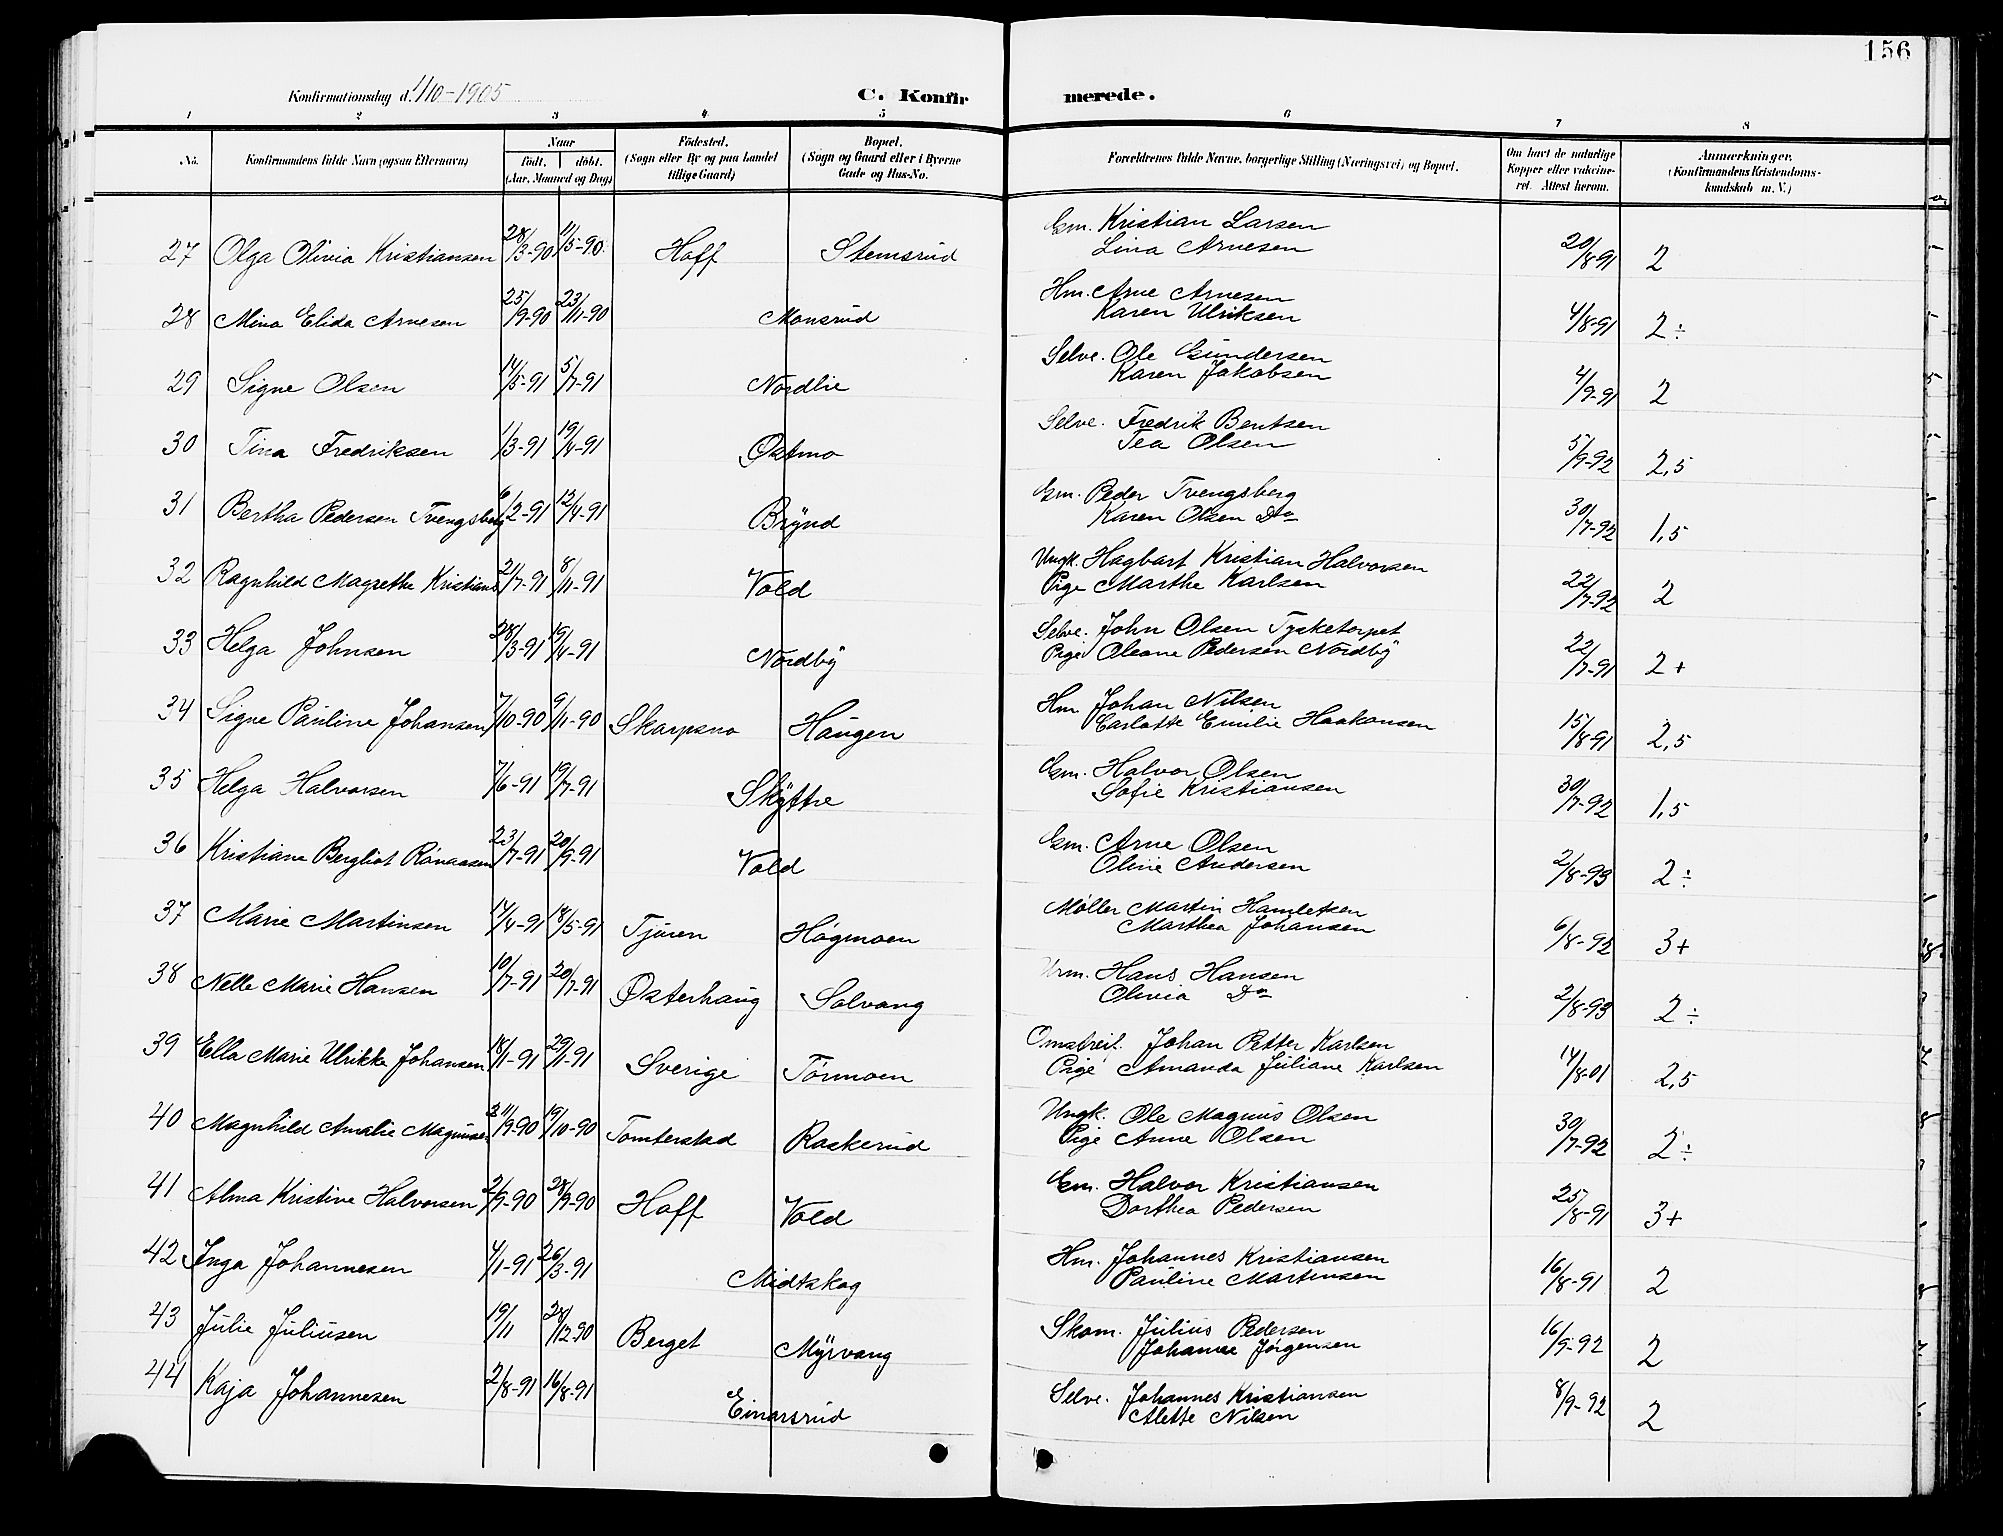 156
Konfirmationsdag d. 1/10-1905
C. Konfirmerede.
1 2 3 4 5 6 7 8
No. Konfirmandens fulde Navn (ogsaa Efternavn) Naar født, døbt. (Aar, Maaned og Dag) Fødested. (Sogn eller By og paa Landet tillige Gaard) Bopæl. (Sogn og Gaard eller i Byerne Gade og Hus-No. Forældrenes fulde Navne, borgerlige Stilling (Næringsvei) og Bopæl. Om havt de naturlige Kopper eller vakcineret. Attest herom. Anmærkninger. (Konfirmandens Kristendomskundskab m. V.)
27 Olga Olivia Kristiansen 28/3-90 11/5-90 Hoff Stemsrud Gm. Kristian Larsen Lina Arnesen 20/8-91 2
28 Mina Elida Arnesen 25/9-90 23/11-90 Monsrud Hm. Arne Arnesen Karen Ulriksen 4/8-91 2÷
29 Signe Olsen 14/5-91 5/7-91 Nordlie Selve. Ole Gundersen Karen Jakobsen 4/9-91 2
30 Tina Fredriksen 1/3-91 19/4-91 Østmo Selve. Fredrik Bentsen Tea Olsen 5/9-92 2,5
31 Bertha Pedersen Tvengsberg 6/2-91 12/4-91 Brynd Gm. Peder Tvengsberg Karen Olsen Do 30/7-92 1,5
32 Ragnhild Magrethe Kristians 21/7-91 8/11-91 Vold Ungk. Hagbart Kristian Halvorsen Pige Marthe Karlsen 22/7-92 2
33 Helga Johnsen 28/3-91 19/4-91 Nordby Selve. John Olsen Tysketorpet Pige Oleane Pedersen Nordby 22/7-91 2+
34 Signe Pauline Johansen 7/10-90 9/11-90 Skarpsno Haugen Hm Johan Nilsen Carlotte Emilie Haakonsen 15/8-91 2,5
35 Helga Halvorsen 7/6-91 19/7-91 Skyttre Gm. Halvor Olsen Sofie Kristiansen 30/7-92 1,5
36 Kristiane Bergliot Rønaasen 23/7-91 20/9-91 Vold Gm. Arne Olsen Oline Andersen 2/8-93 2÷
37 Marie Martinsen 14/4-91 18/5-91 Tjuren Høgmoen Møller Martin Hamletsen Marthea Johansen 6/8-92 3+
38 Nelle Marie Hansen 10/7-91 20/7-91 Østerhaug Solvang Urm. Hans Hansen Olivia Do 2/8-93 2÷
39 Ella Marie Ulrikke Johansen 18/1-91 29/1-91 Sverige Tørmoen Omstreif. Johan Petter Karlsen Pige Amanda Juliane Karlsen 14/8-01 2,5
40 Magnhild Amalie Magnusen 11/9-90 19/10-90 Tomterstad Raskerud Ungk. Ole Magnus Olsen Pige Anne Olsen 30/7-92 2÷
41 Alma Kristine Halvorsen 2/9-90 28/9-90 Hoff Vold Gm. Halvor Kristiansen Dorthea Pedersen 25/8-91 3+
42 Inga Johannesen 4/1-91 26/3-91 Midtskog Hm. Johannes Kristiansen Pauline Martinsen 16/8-91 2
43 Julie Juliusen 19/11 28/12-90 Berget Myrvang Skom. Julius Pedersen Johanne Jørgensen 16/9-92 2
44 Kaja Johannesen 2/8-91 16/8-91 Einarsrud Selve. Johannes Kristiansen Alette Nilsen 8/9-92 2